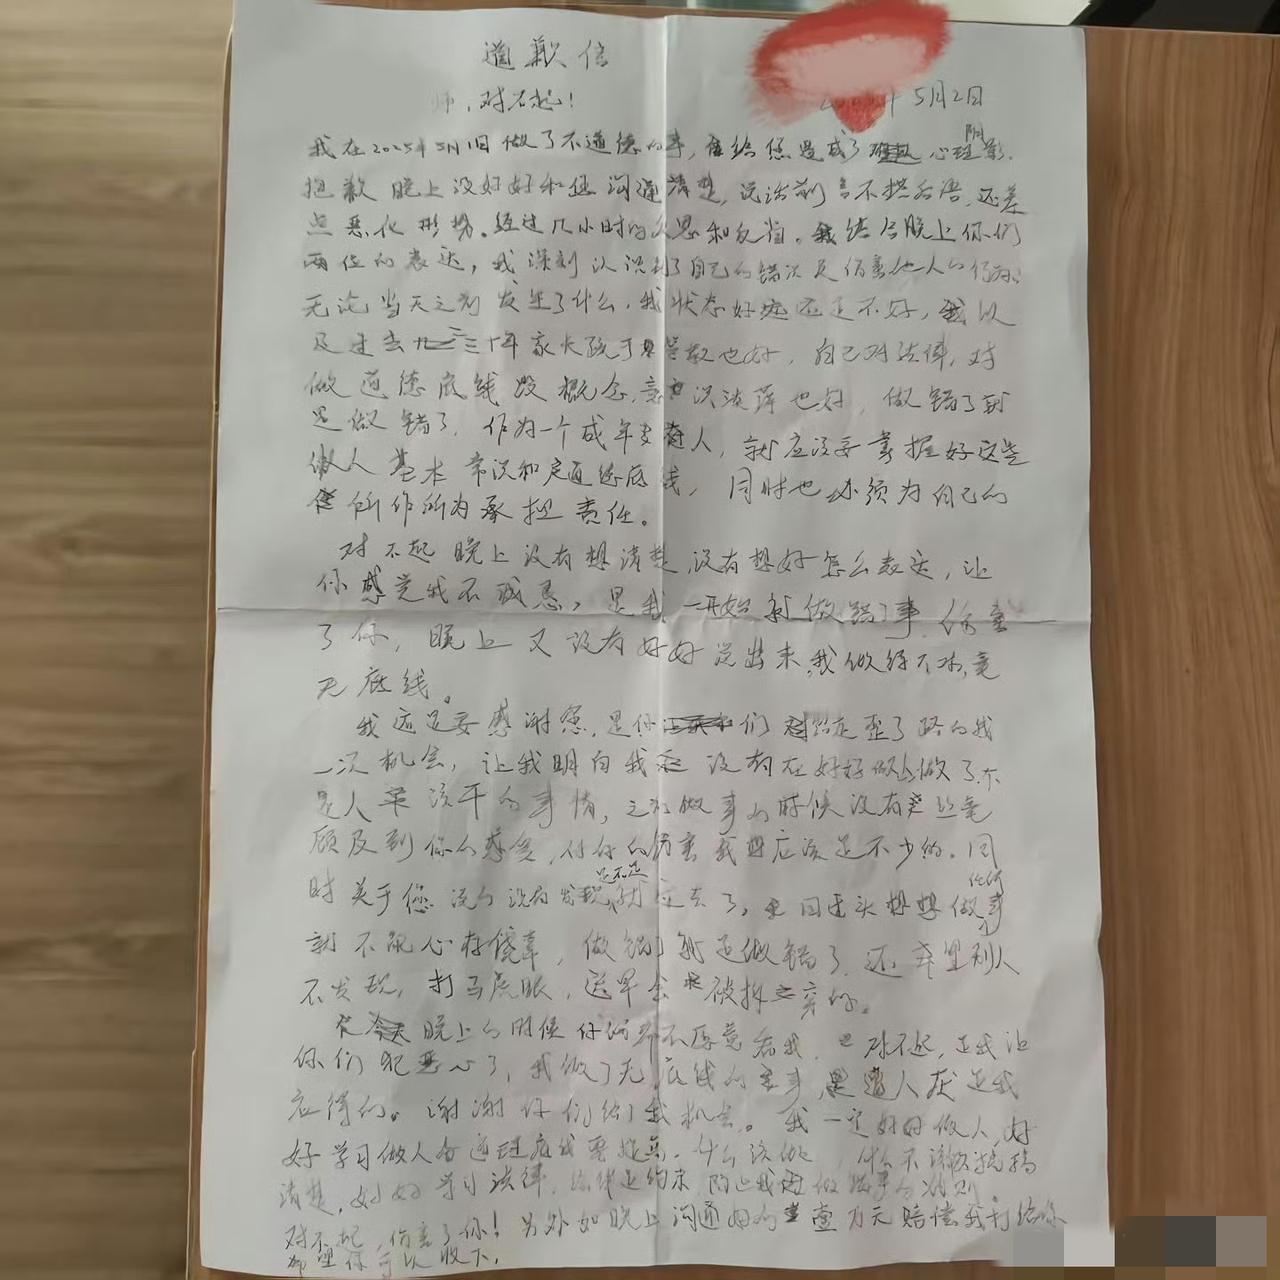 道歉信
师，对不起！
5月2日
我在2025年5月1日做了不道德的事，给您造成了心理阴影，
抱歉晚上没好好和您沟通清楚，说话前言不搭后语，还差
点恶化形势。经过几小时的反思和反省，我结合晚上你们
两位的表达，我深刻认识到了自己的错误是伤害他人的行为。
无论当天之前发生了什么，我状态好还是不好，我以
及过去二三十年家长疏于管教也好，自己对法律，对
做道德底线没概念，意识淡薄也好，做错了就
是做错了，作为一个成年人，就应该要掌握好这些
做人基本常识和道德底线，同时也必须为自己的
所作所为承担责任。
对不起晚上没有想清楚，没有想好怎么表达，让
你感觉我不诚恳，是我一开始就做错了事，伤害
了你，晚上又没有好好说出来，我做得不对，毫
无底线。
我还是要感谢您，是你们给走歪了路的我
一次机会，让我明白我没有在好好做人做了不
是人该干的事情，之前做事的时候没有丝毫
顾及到你的感受，对你的伤害我应该是不少的。同
时关于您没有发现是不是就过去了，回过头想想做任何事
就不能心存侥幸，做错了就是做错了，还希望别人
不发现，打马虎眼，迟早会被拆穿的。
晚上的时候你们都不愿意看我，对不起，是我让
你们犯恶心了，我做了无底线的事，遭人厌是我
应得的。谢谢你们给了我机会。我一定好好做人，好
好学习做人的道理，什么该做，什么不该做搞
清楚，好好学习法律，
对不起，伤害了你！另外如晚上沟通好的壹万元赔偿我打给你
希望你可以收下。